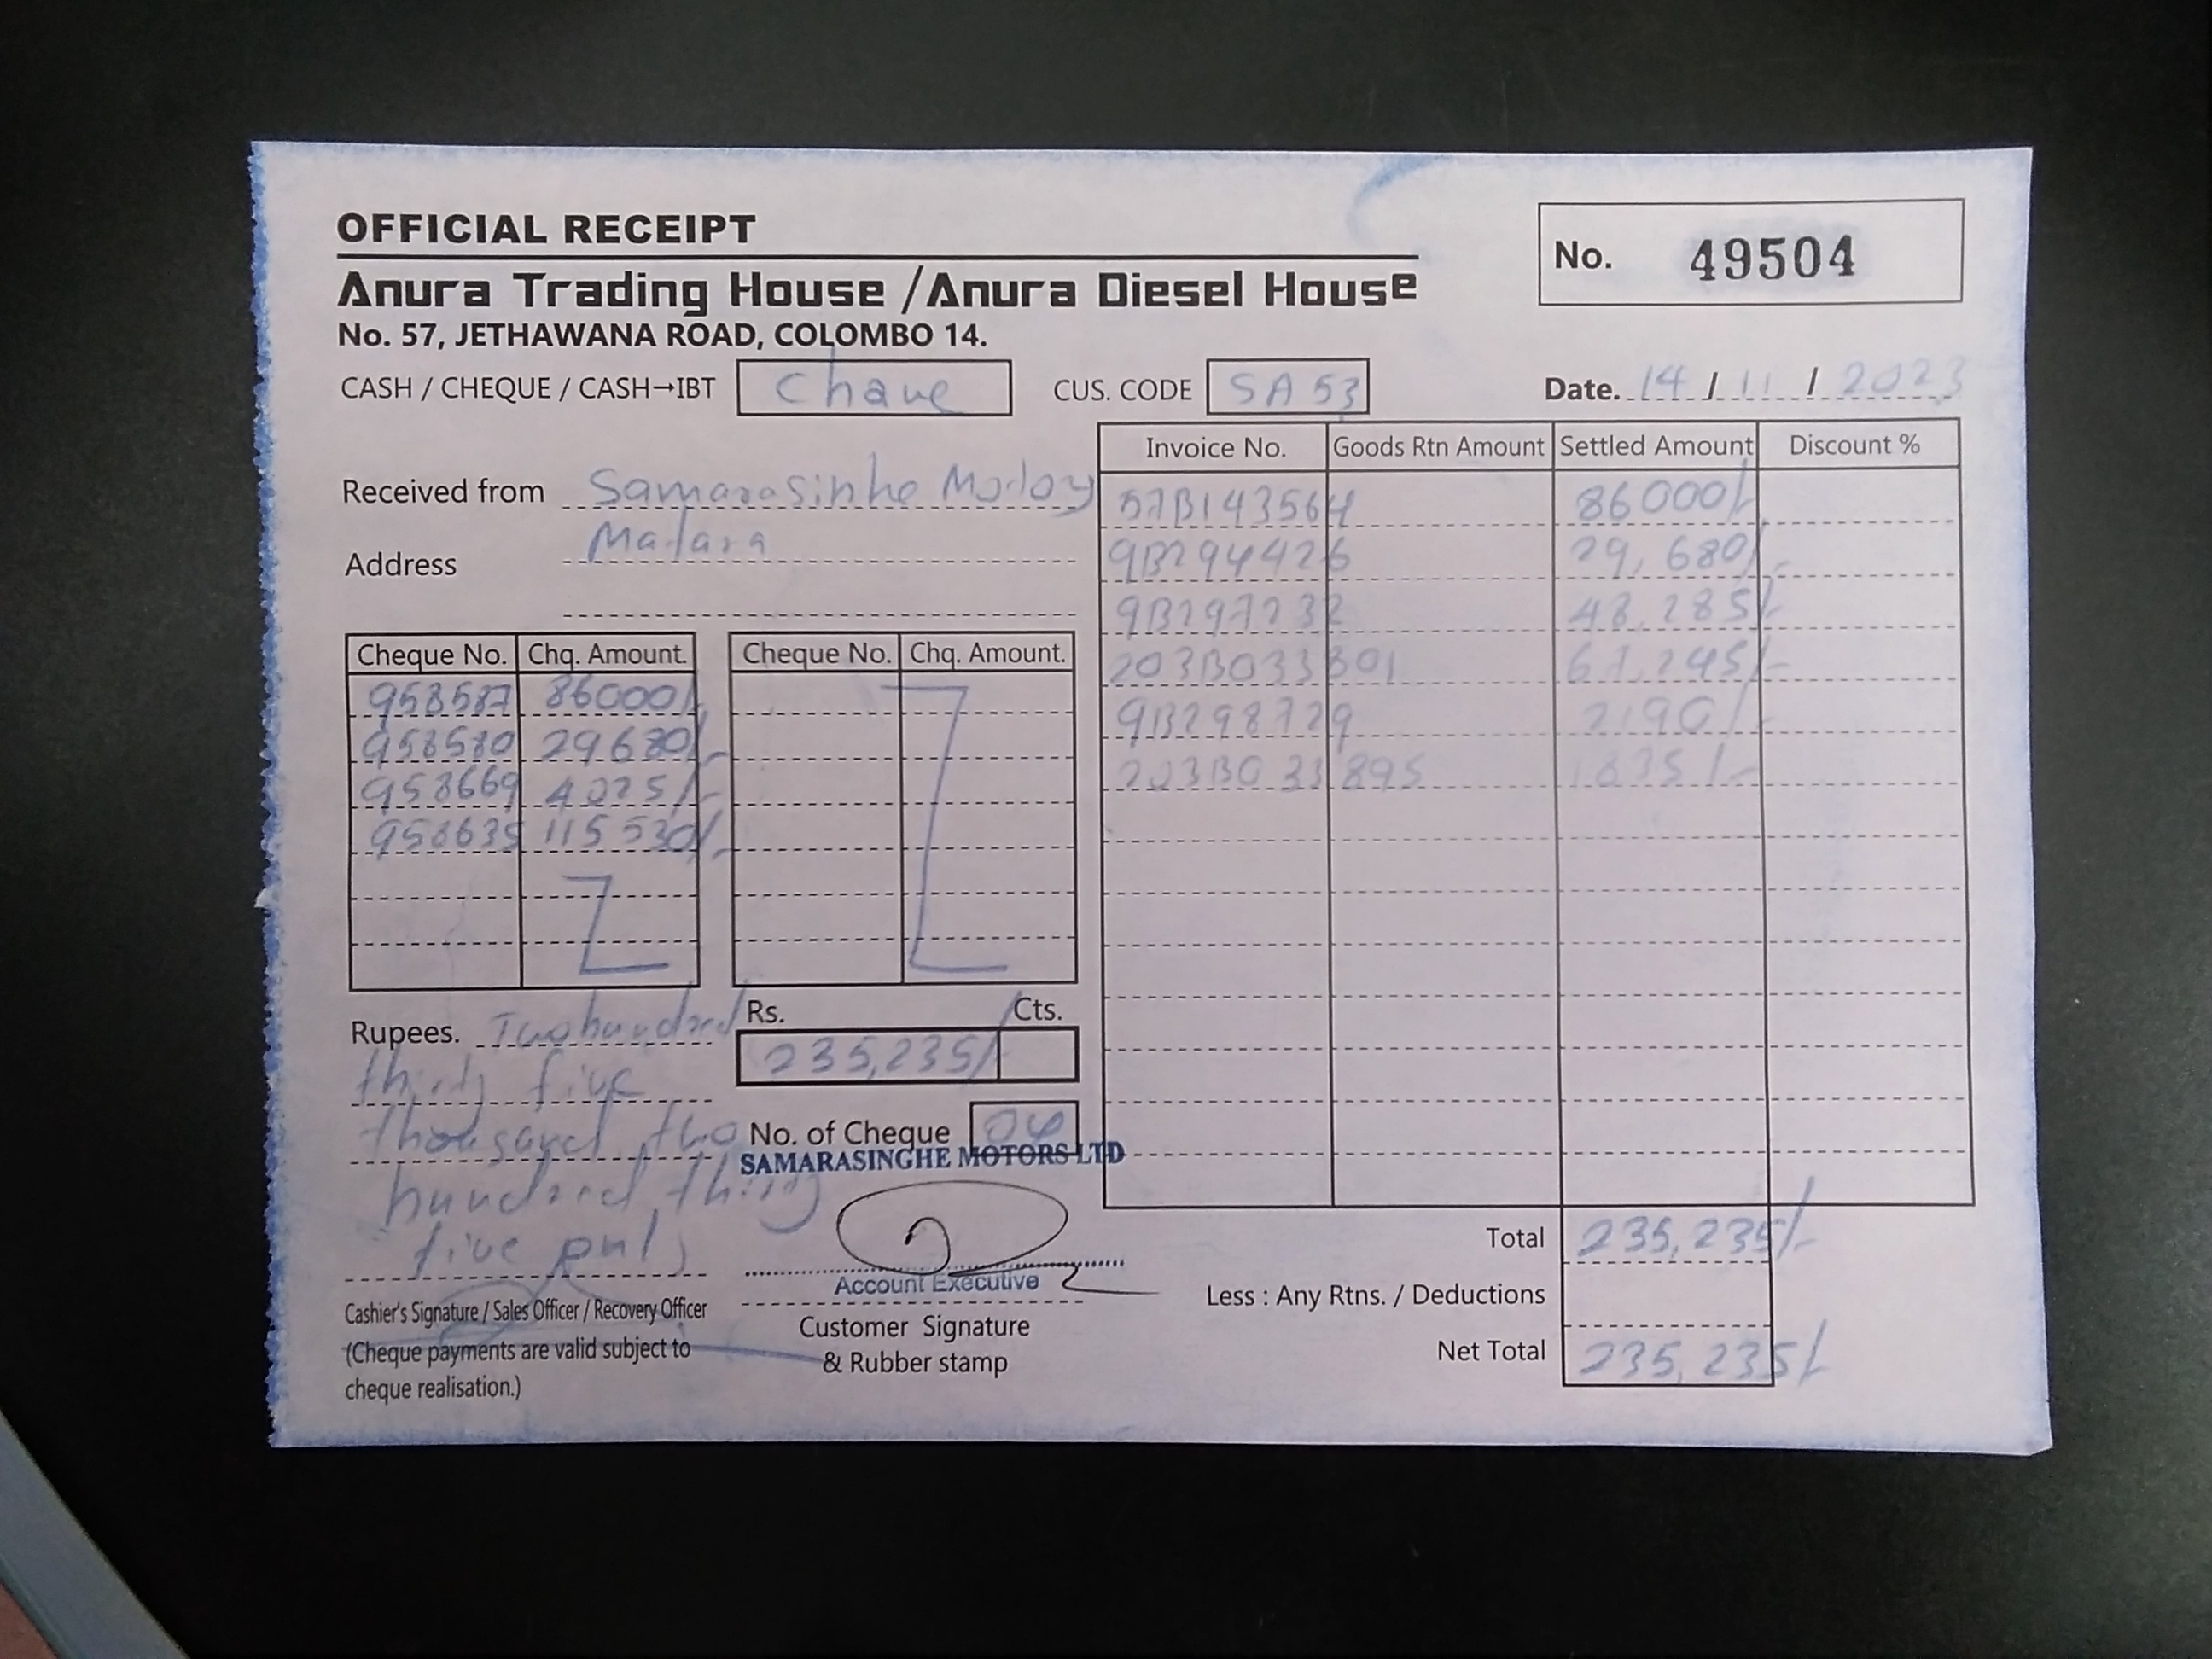 OFFICIAL RECEIPT
Anura Trading House / Anura Diesel House
No. 57, JETHAWANA ROAD, COLOMBO 14.
No. 49504
CASH / CHEQUE / CASH→IBT CUS. CODE SA 53 Date. 14 / 11 / 2023
Received from Samarasinhe
Address Matara
Cheque No. Chq. Amount.
958587 86000/-
958580 29680/-
958669 4025/-
958635 115530/-
Cheque No. Chq. Amount.
Rupees. Two hundred
thirty five
thousand two
hundred thirty
five only
Rs. Cts.
235,235/-
No. of Cheque 04
SAMARASINGHE MOTORS LTD
Account Executive
Customer Signature
& Rubber stamp
Cashier's Signature / Sales Officer / Recovery Officer
(Cheque payments are valid subject to
cheque realisation.)
Invoice No. Goods Rtn Amount Settled Amount Discount %
57B143564 86000/-
9B294426 29,680/-
9B297232 48,285/-
203B033801 67,245/-
9B298729 2190/-
203B033895 1835/-
Total 235,235/-
Less : Any Rtns. / Deductions
Net Total 235,235/-